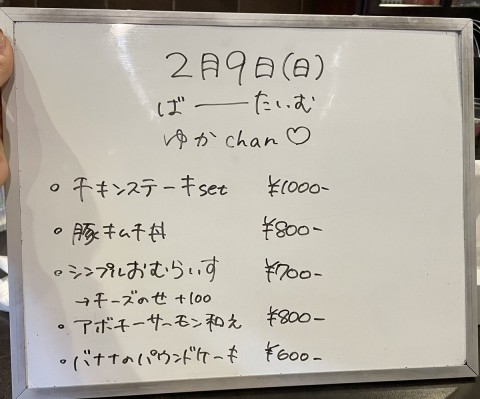 2月9日(日)
ばーたいむ
ゆかchan♡
○ チキンステーキset ¥1000-
○ 豚キムチ丼 ¥800-
○ シンプルおむらいす ¥700-
→チーズのせ +100
○ アボチーサーモン和え ¥800-
○ バナナのパウンドケーキ ¥600-